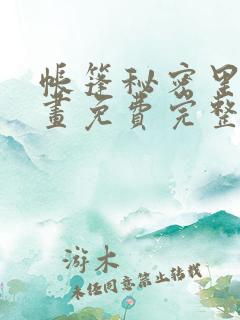 帳篷秘密里
畫免費完整
游木
未经同意禁止转载